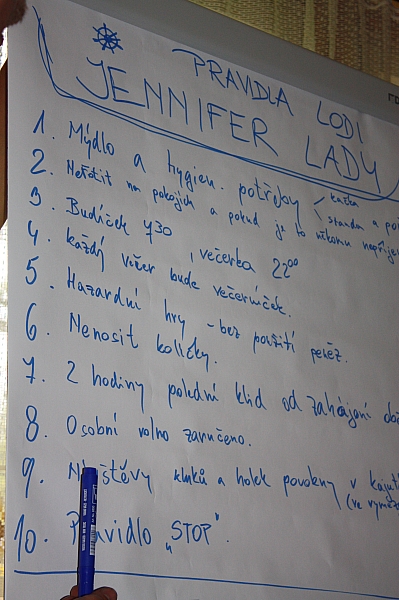 PRAVIDLA LODI
JENNIFER LADY
1. Mýdlo a hygien. potřeby
kačka
standa a
2. Neřešit na pokojích a pokud je to někomu
3. Budíček 730, večerka 22⁰⁰
4. každý večer bude večerníček.
5. Hazardní hry - bez použití peněz.
6. Nenosit kolíčky.
7. 2 hodiny polední klid od zahájení
8. Osobní volno zaručeno.
9. kluků a holek povoleny v
(ve
10. Pravidlo "STOP".